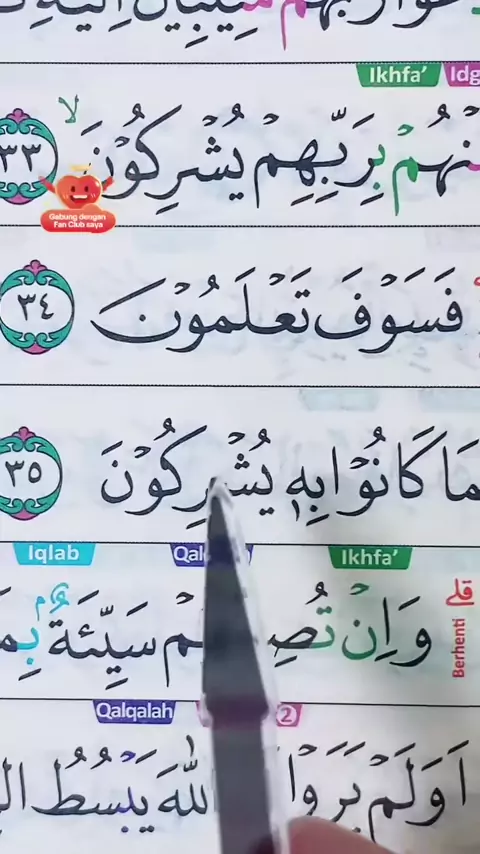 Ikhfa’
نْهُمْ بِرَبِّهِمْ يُشْرِكُوْنَ ۙ ٣٣
Gabung dengan
Fan Club saya
فَسَوْفَ تَعْلَمُوْنَ ٣٤
مَا كَانُوْا بِهٖ يُشْرِكُوْنَ ٣٥
Iqlab Ikhfa’
وَاِنْ سَيِّئَةٌ ۢ
Berhenti قلى
Qalqalah 2
اَوَلَمْ يَرَوْا اللّٰهَ يَبْسُطُ